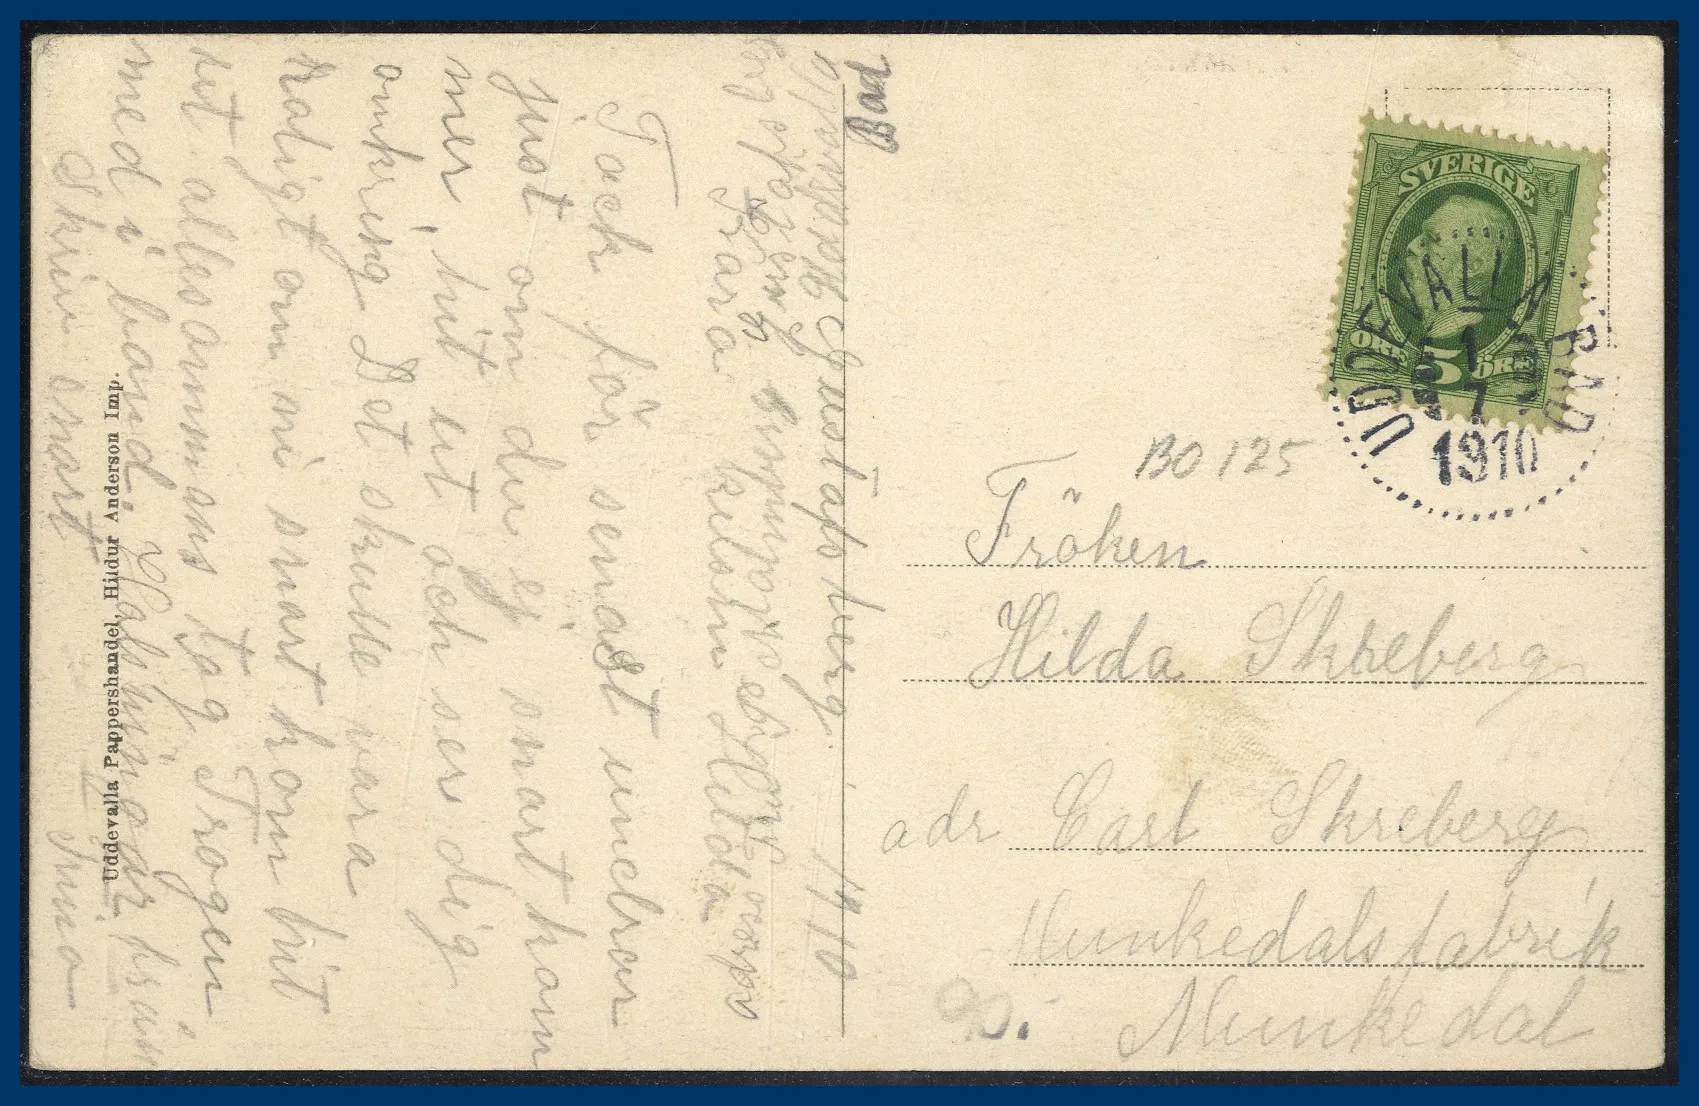 Gustafsberg 1/7 10
Kära kusin Hilda
Tack för senast undrar
just om du ej snart kom
mer hit ut och ser dig
omkring Det skulle vara
roligt om ni snart kom hit
det allesammans tåg Trogen
med i band
Skriv snart
Bad
SVERIGE
ÖRE 5 ÖRE
UDDEVALLA
1
7
1910
BO 125
Fröken
Hilda Skreberg
adr Carl Skreberg
Munkedalsfabrik
Munkedal
Uddevalla Pappershandel, Hildur Anderson Imp.